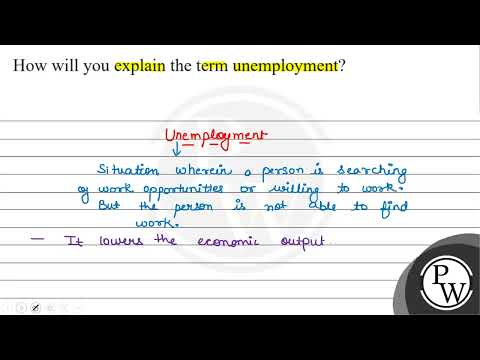 How will you explain the term unemployment?
Unemployment
Situation wherein a person is searching
of work opportunities or willing to work.
But the person is not able to find
work.
— It lowers the economic output
PW